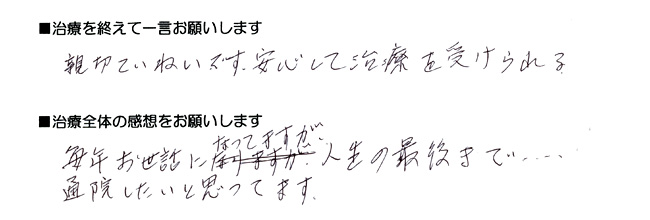 ■治療を終えて一言お願いします
親切ていねいです、安心して治療を受けられる
■治療全体の感想をお願いします
毎年お世話になってますが、人生の最後まで‥‥
通院したいと思ってます。